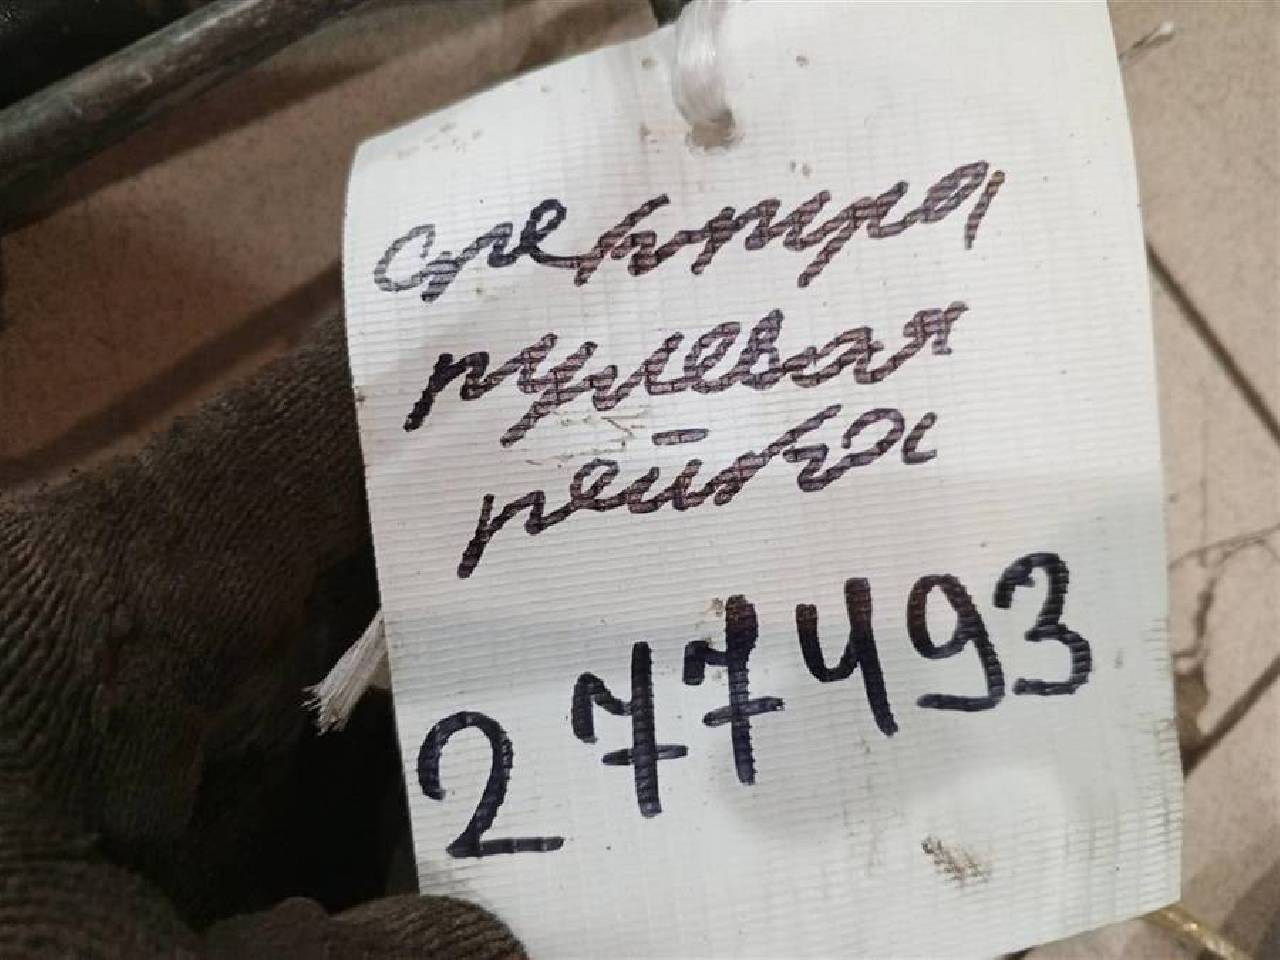 спектра
рулевая
рейка
277493